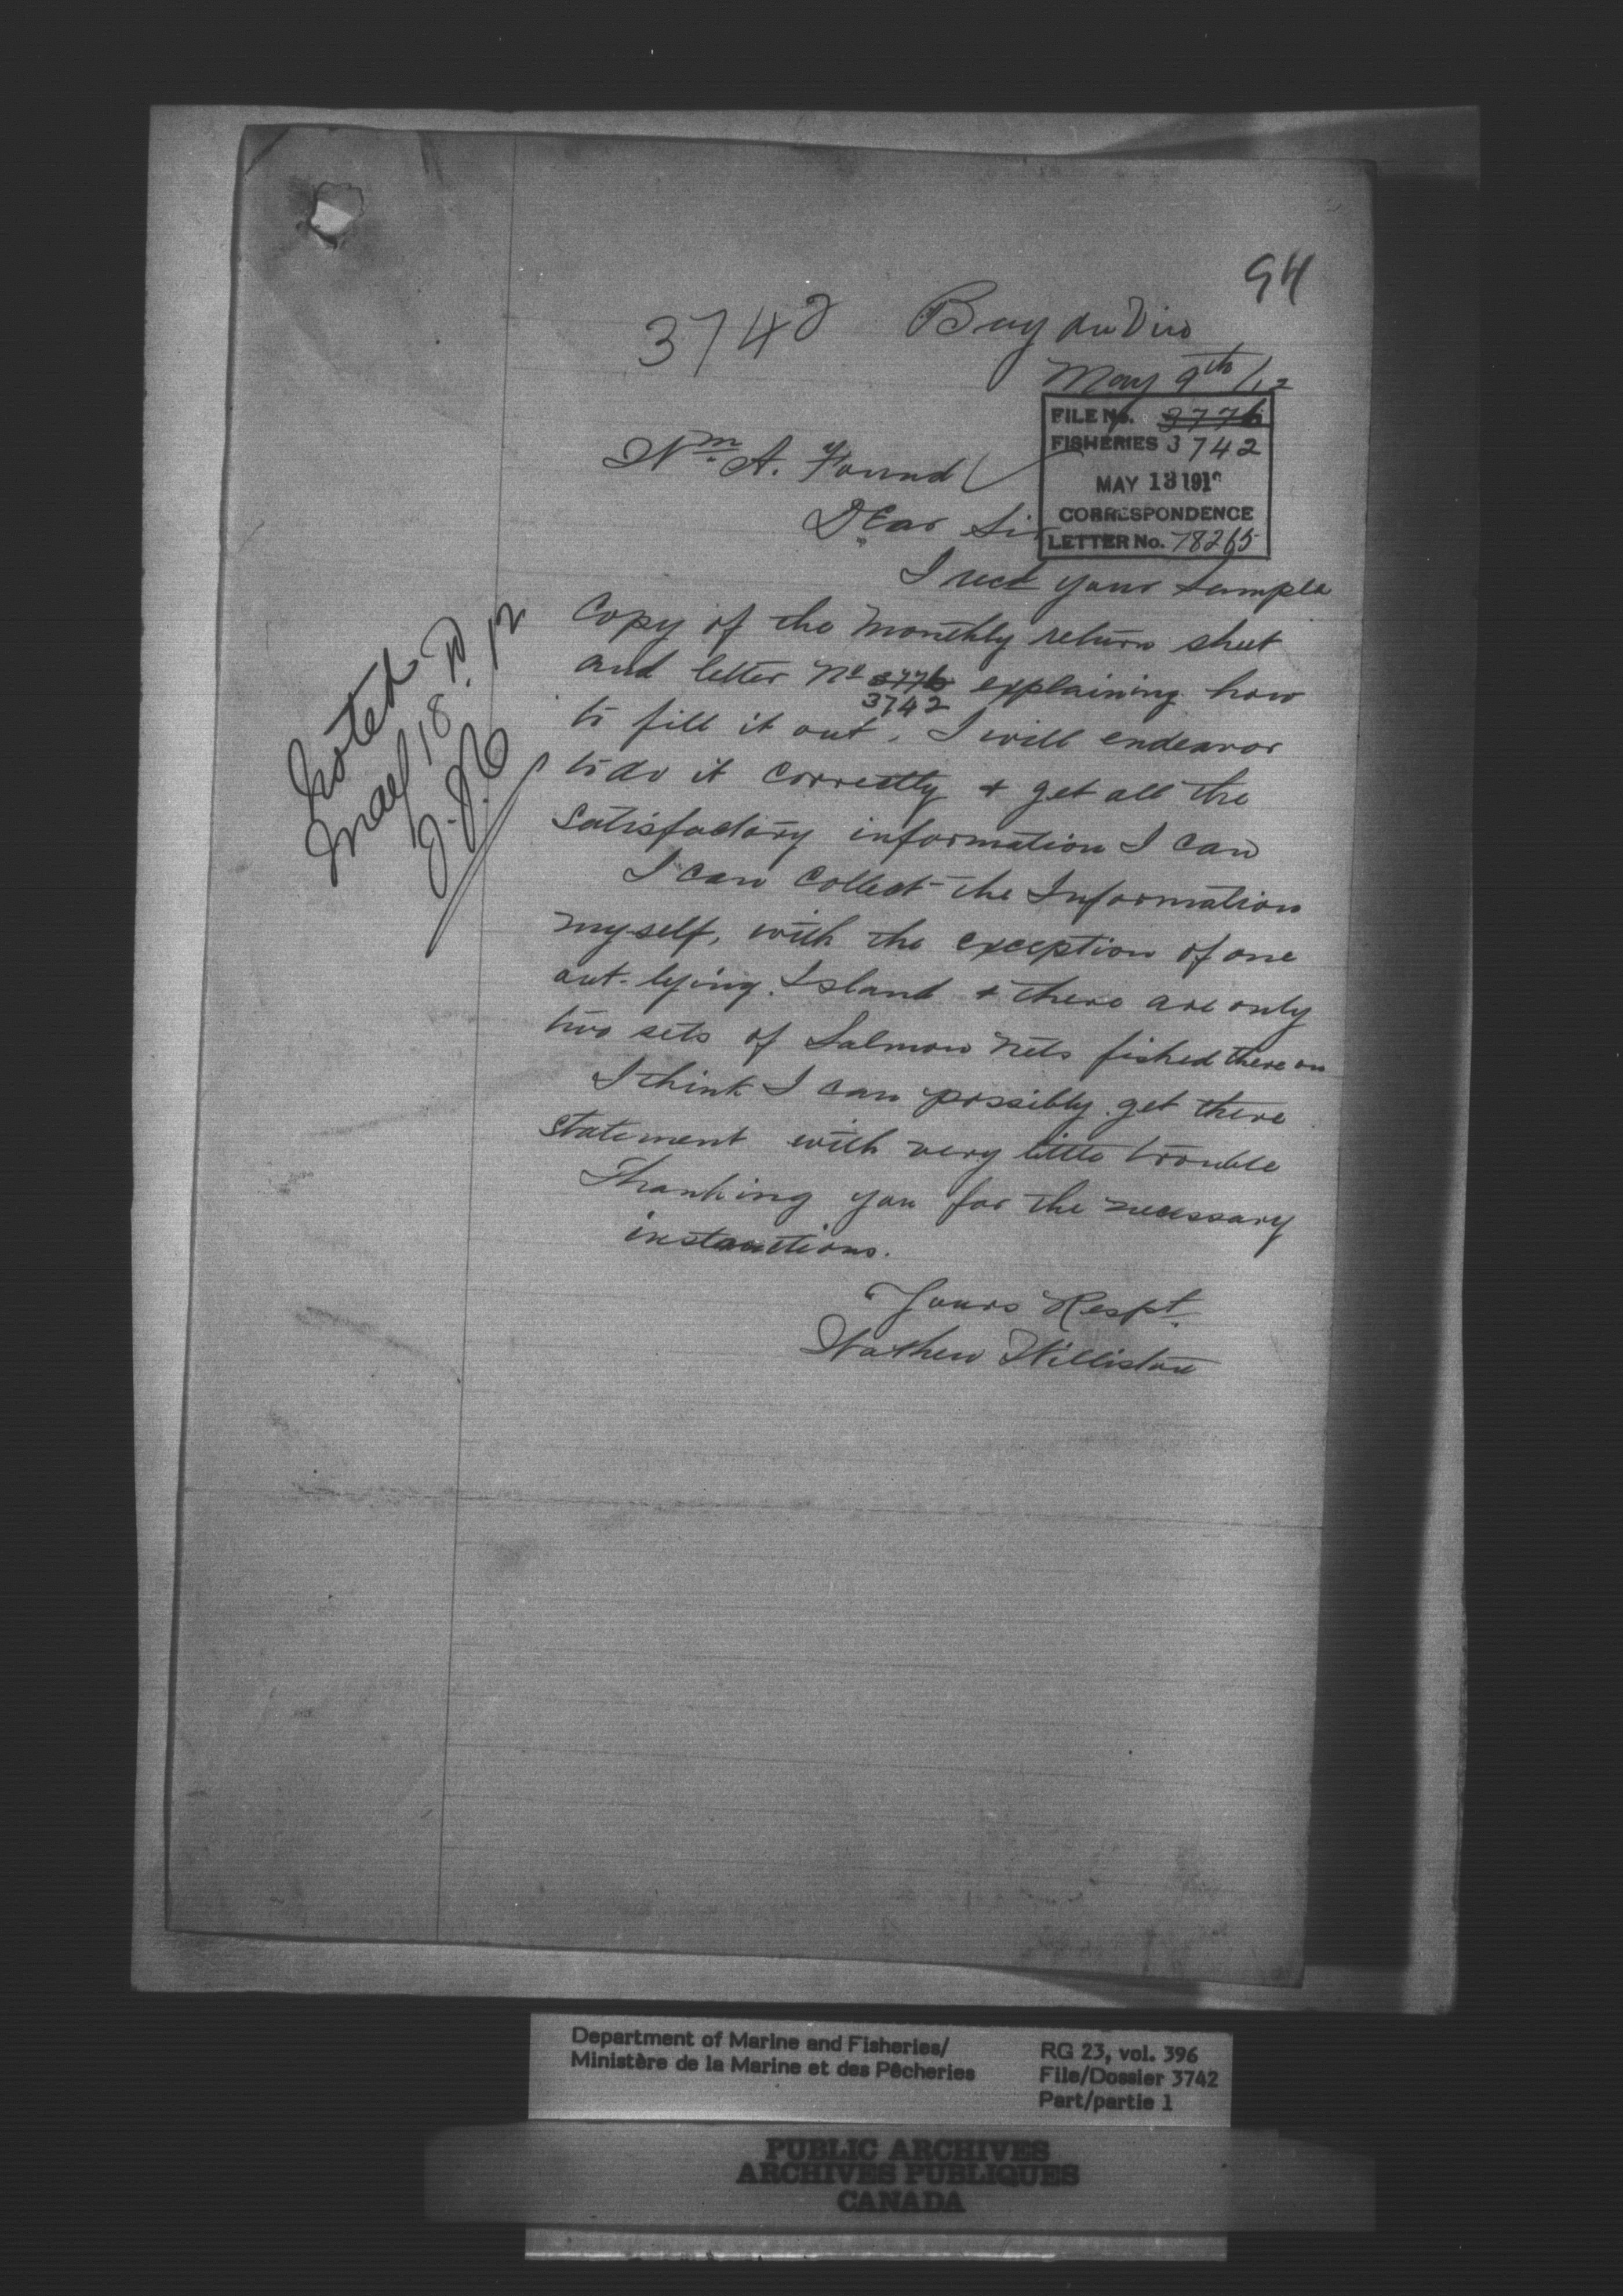 94
3742 Bay du Vin
May 9th /12
FILE No. 3776
FISHERIES 3742
MAY 13 191
CORRESPONDENCE
LETTER No. 78265
Wm. A. Found
Dear Sir
I recd your Sample
Copy of the Monthly return sheet
and letter No 3776 explaining how
3742
to fill it out. I will endeavor
to do it correctly + get all the
Satisfactory information I can
I can collect the Information
myself, with the exception of one
out-lying Island + there are only
two sets of Salmon Nets fished there on
I think I can possibly get there
statement with very little trouble
Thanking you for the necessary
instructions.
Yours Respt.
Wathen Williston
Noted
May 18. 12
Department of Marine and Fisheries/
Ministère de la Marine et des Pêcheries
RG 23, vol. 396
File/Dossier 3742
Part/partie 1
PUBLIC ARCHIVES
ARCHIVES PUBLIQUES
CANADA